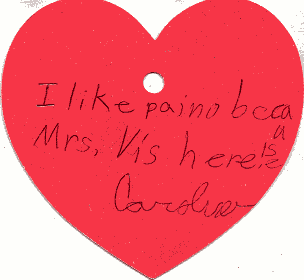 I like paino becau
se
Mrs. V is here.
Caroline